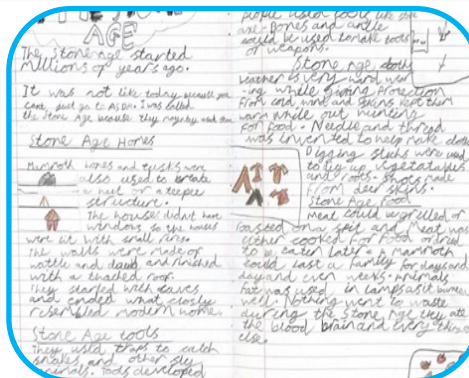 AGE
The Stone Age started
millions of years ago.
It was not like today because you
cant just go to ASDA. It was called
the Stone Age because they
Stone Age Homes
Mammoth bones and tusks were
also used to create
a hut or a teepee
structure.
The houses didn't have
windows so the houses
were lit with small fires.
The walls were made of
wattle and daub and finished
with a thatched roof.
They started with caves
and ended what closly
resembled modern home.
Stone Age tools
They used traps to catch
snakes and other sly
animals. Tools developed
people used tools like
axe. Bones and antle
would be used to make tools
or weapons.
Stone Age cloths
Leather is very
-ing while giving protection
From cold, wind and skins kept them
warm while out hunting
For food. Needle and thread
was invented to help make
Digging sticks were used
to dig up vegetables
and roots. Shoes made
From deer skins.
Stone Age Food
Meat could be grilled or
roasted on a spit and Meat was
either cooked for food or dried
to be eaten later. a mammoth
could last a family for days and
days and even weeks. Animals
Fat was used in lamps as it burned
well. Nothing went to waste
during the Stone Age they ate
the blood brain and every thing
else.